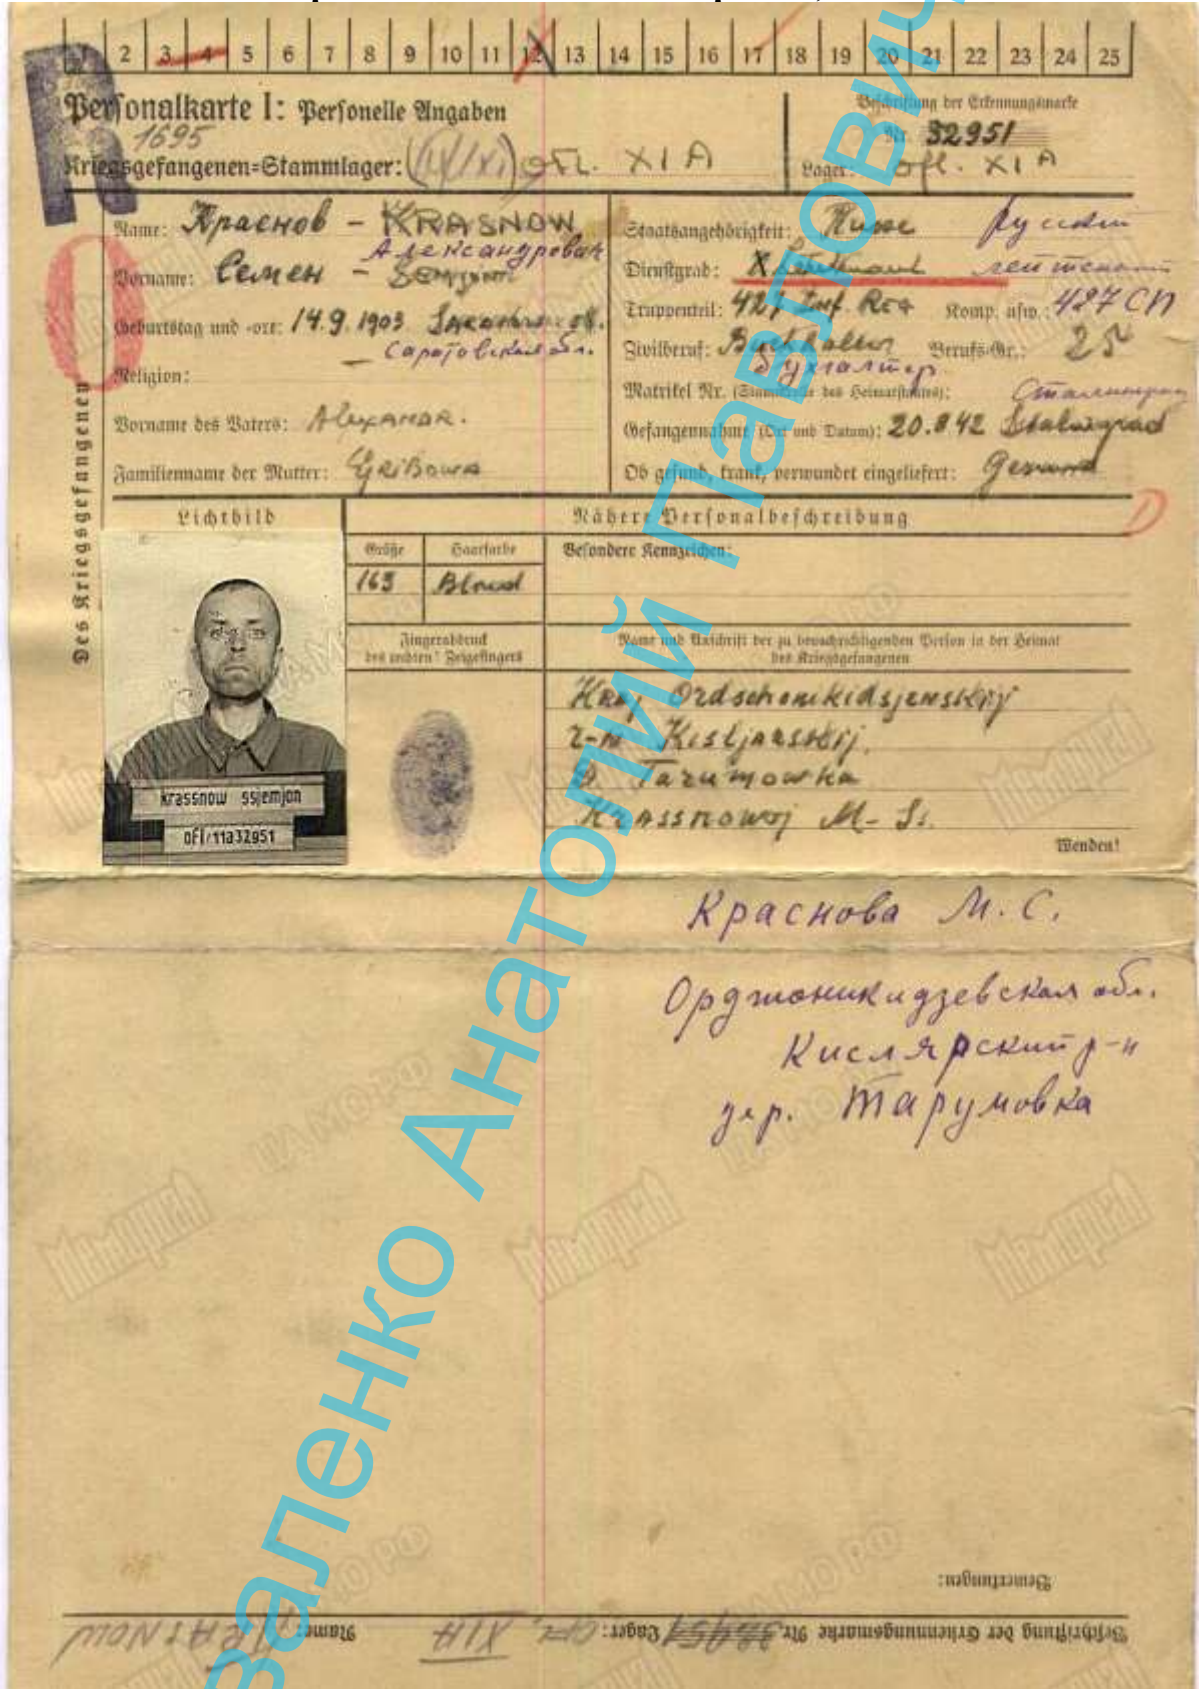 1 2 3 4 5 6 7 8 9 10 11 12 13 14 15 16 17 18 19 20 21 22 23 24 25
R
Personalkarte I: Personelle Angaben
1695
Kriegsgefangenen=Stammlager: Ofl. XI A
Beschriftung der Erkennungsmarke
Nr. 32951
Lager: Ofl. XI A
Des Kriegsgefangenen
Name: Краснов – KRASNOW
Александрович
Vorname: Семен –
Geburtstag und =ort: 14.9.1903
Саратовская обл.
Religion:
Vorname des Vaters: Alexandr.
Familienname der Mutter: Gribowa
Staatsangehörigkeit: Russe русский
Dienstgrad: X Leutnant лейтенант
Truppenteil: 427 Inf. Reg Komp. usw.: 427 СП
Zivilberuf: Buchhalter Berufs=Gr.: 25
бухгалтер
Matrikel Nr. (Stammrolle des Heimatstaates):
Сталинград
Gefangennahme (Ort und Datum): 20.8.42 Stalingrad
Ob gesund, krank, verwundet eingeliefert: Gesund
Lichtbild
Nähere Personalbeschreibung
Größe Haarfarbe Besondere Kennzeichen:
163 Blond
Fingerabdruck
des rechten! Zeigefingers
Name und Anschrift der zu benachrichtigenden Person in der Heimat
des Kriegsgefangenen
Kraj Ordschonikidsjewskij
r-n Kisljarskij.
D. Tarumowka
Krassnowoj M- S.
krassnow ssjemjon
ofl 11a 32951
Wenden!
Краснова М. С.
Орджоникидзевская обл.
Кислярский р-н
дер. Тарумовка
Мемориал
ЦАМО РФ
валенко Анатолий Павлович
Bemerkungen:
Beschriftung der Erkennungsmarke Nr. 32951 Lager: Ofl. XIA Name: KRASNOW